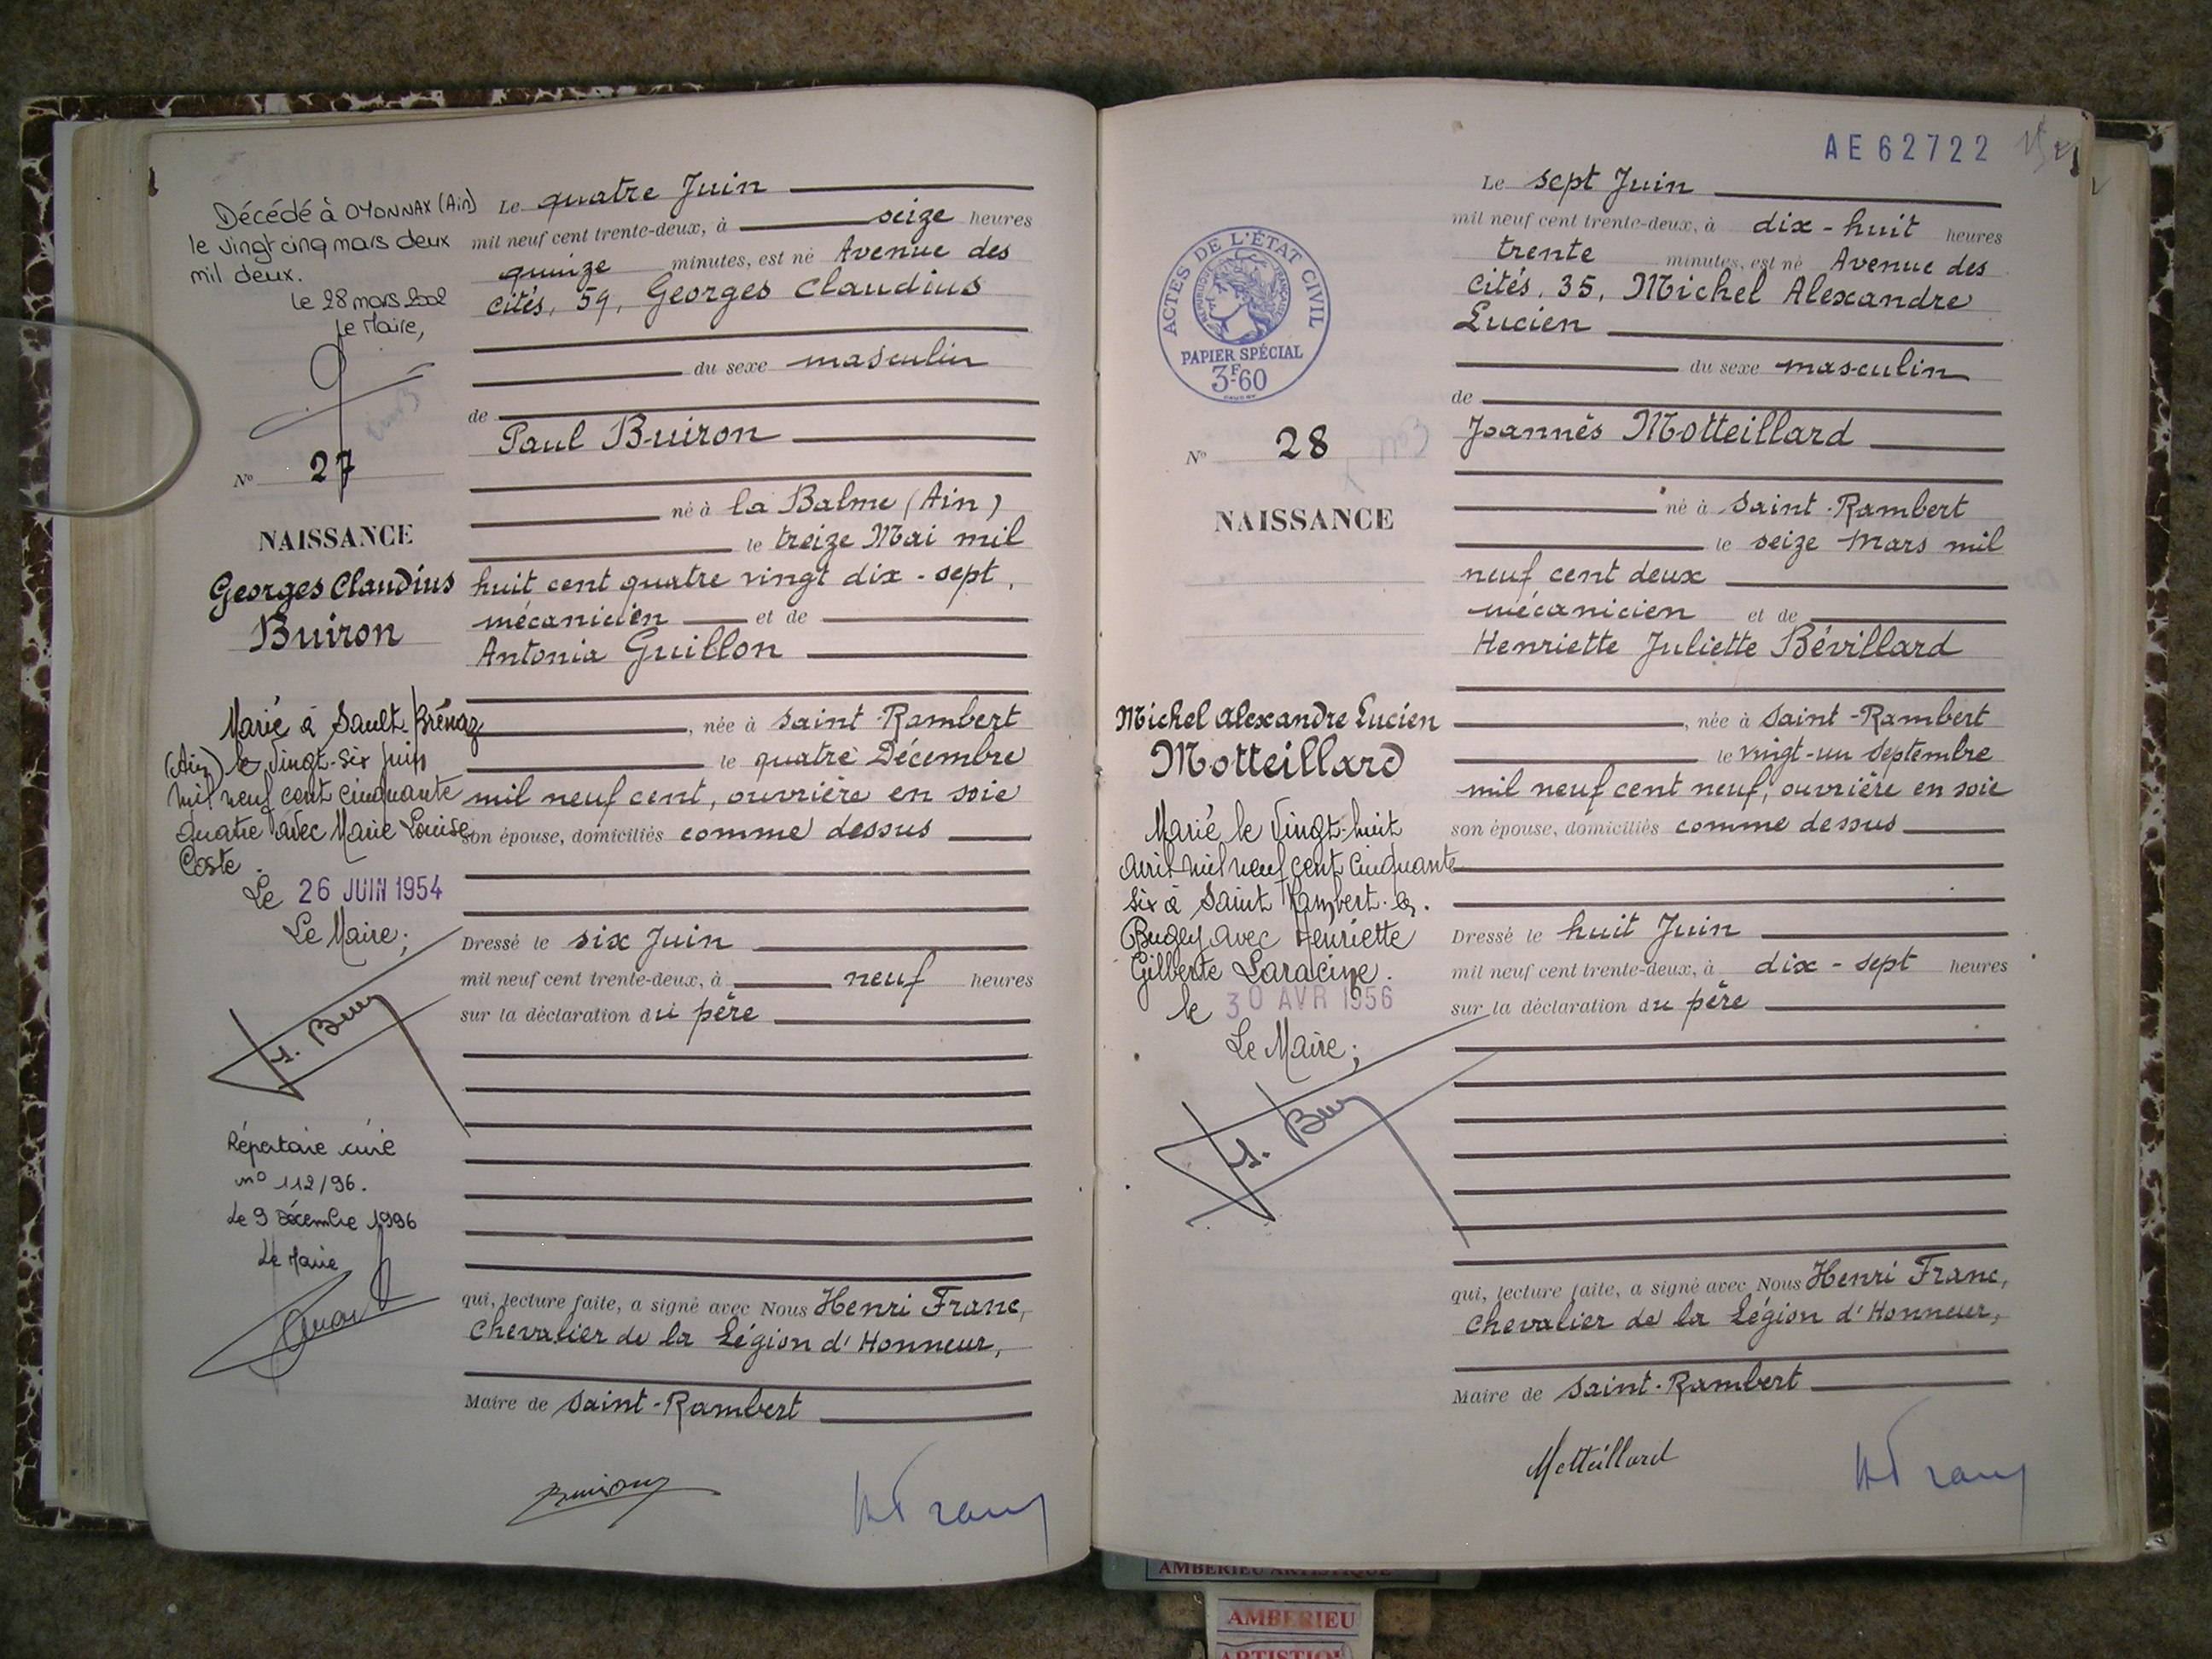 Décédé à OYONNAX (Ain)
le vingt cinq mars deux
mil deux.
Le 28 mars 2002
Le Maire,
N° 27
NAISSANCE
Georges Claudius
Buiron
Marié à Sault-Brénaz
(Ain) le vingt-six juin
mil neuf cent cinquante
quatre avec Marie Louise
Coste.
Le 26 JUIN 1954
Le Maire;
Répertoire civil
n° 112/96.
Le 9 décembre 1996
Le Maire
Le quatre Juin
mil neuf cent trente-deux, à seize heures
quinze minutes, est né Avenue des
Cités, 59, Georges Claudius
du sexe masculin
de
Paul Buiron
né à la Balme (Ain)
le treize Mai mil
huit cent quatre vingt dix-sept,
mécanicien et de
Antonia Guillon
, née à Saint-Rambert
le quatre Décembre
mil neuf cent, ouvrière en soie
son épouse, domiciliés comme dessus
Dressé le six Juin
mil neuf cent trente-deux, à neuf heures
sur la déclaration du père
qui, lecture faite, a signé avec Nous Henri Franc,
Chevalier de la Légion d'Honneur,
Maire de Saint-Rambert
AE62722
ACTES DE L'ÉTAT CIVIL
RÉPUBLIQUE FRANÇAISE
PAPIER SPÉCIAL
3F60
N° 28
NAISSANCE
Michel Alexandre Lucien
Motteillard
Marié le vingt-huit
avril mil neuf cent cinquante
six à Saint Rambert-en-
Bugey avec Henriette
Gilberte Laracine.
le 30 AVR 1956
Le Maire;
Le sept Juin
mil neuf cent trente-deux, à dix-huit heures
trente minutes, est né Avenue des
Cités, 35, Michel Alexandre
Lucien
du sexe masculin
de
Joannès Motteillard
né à Saint-Rambert
le seize Mars mil
neuf cent deux
mécanicien et de
Henriette Juliette Bévillard
, née à Saint-Rambert
le vingt-un Septembre
mil neuf cent neuf, ouvrière en soie
son épouse, domiciliés comme dessus
Dressé le huit Juin
mil neuf cent trente-deux, à dix-sept heures
sur la déclaration du père
qui, lecture faite, a signé avec Nous Henri Franc,
Chevalier de la Légion d'Honneur,
Maire de Saint-Rambert
Motteillard
AMBERIEU ARTISTIQUE
AMBERIEU